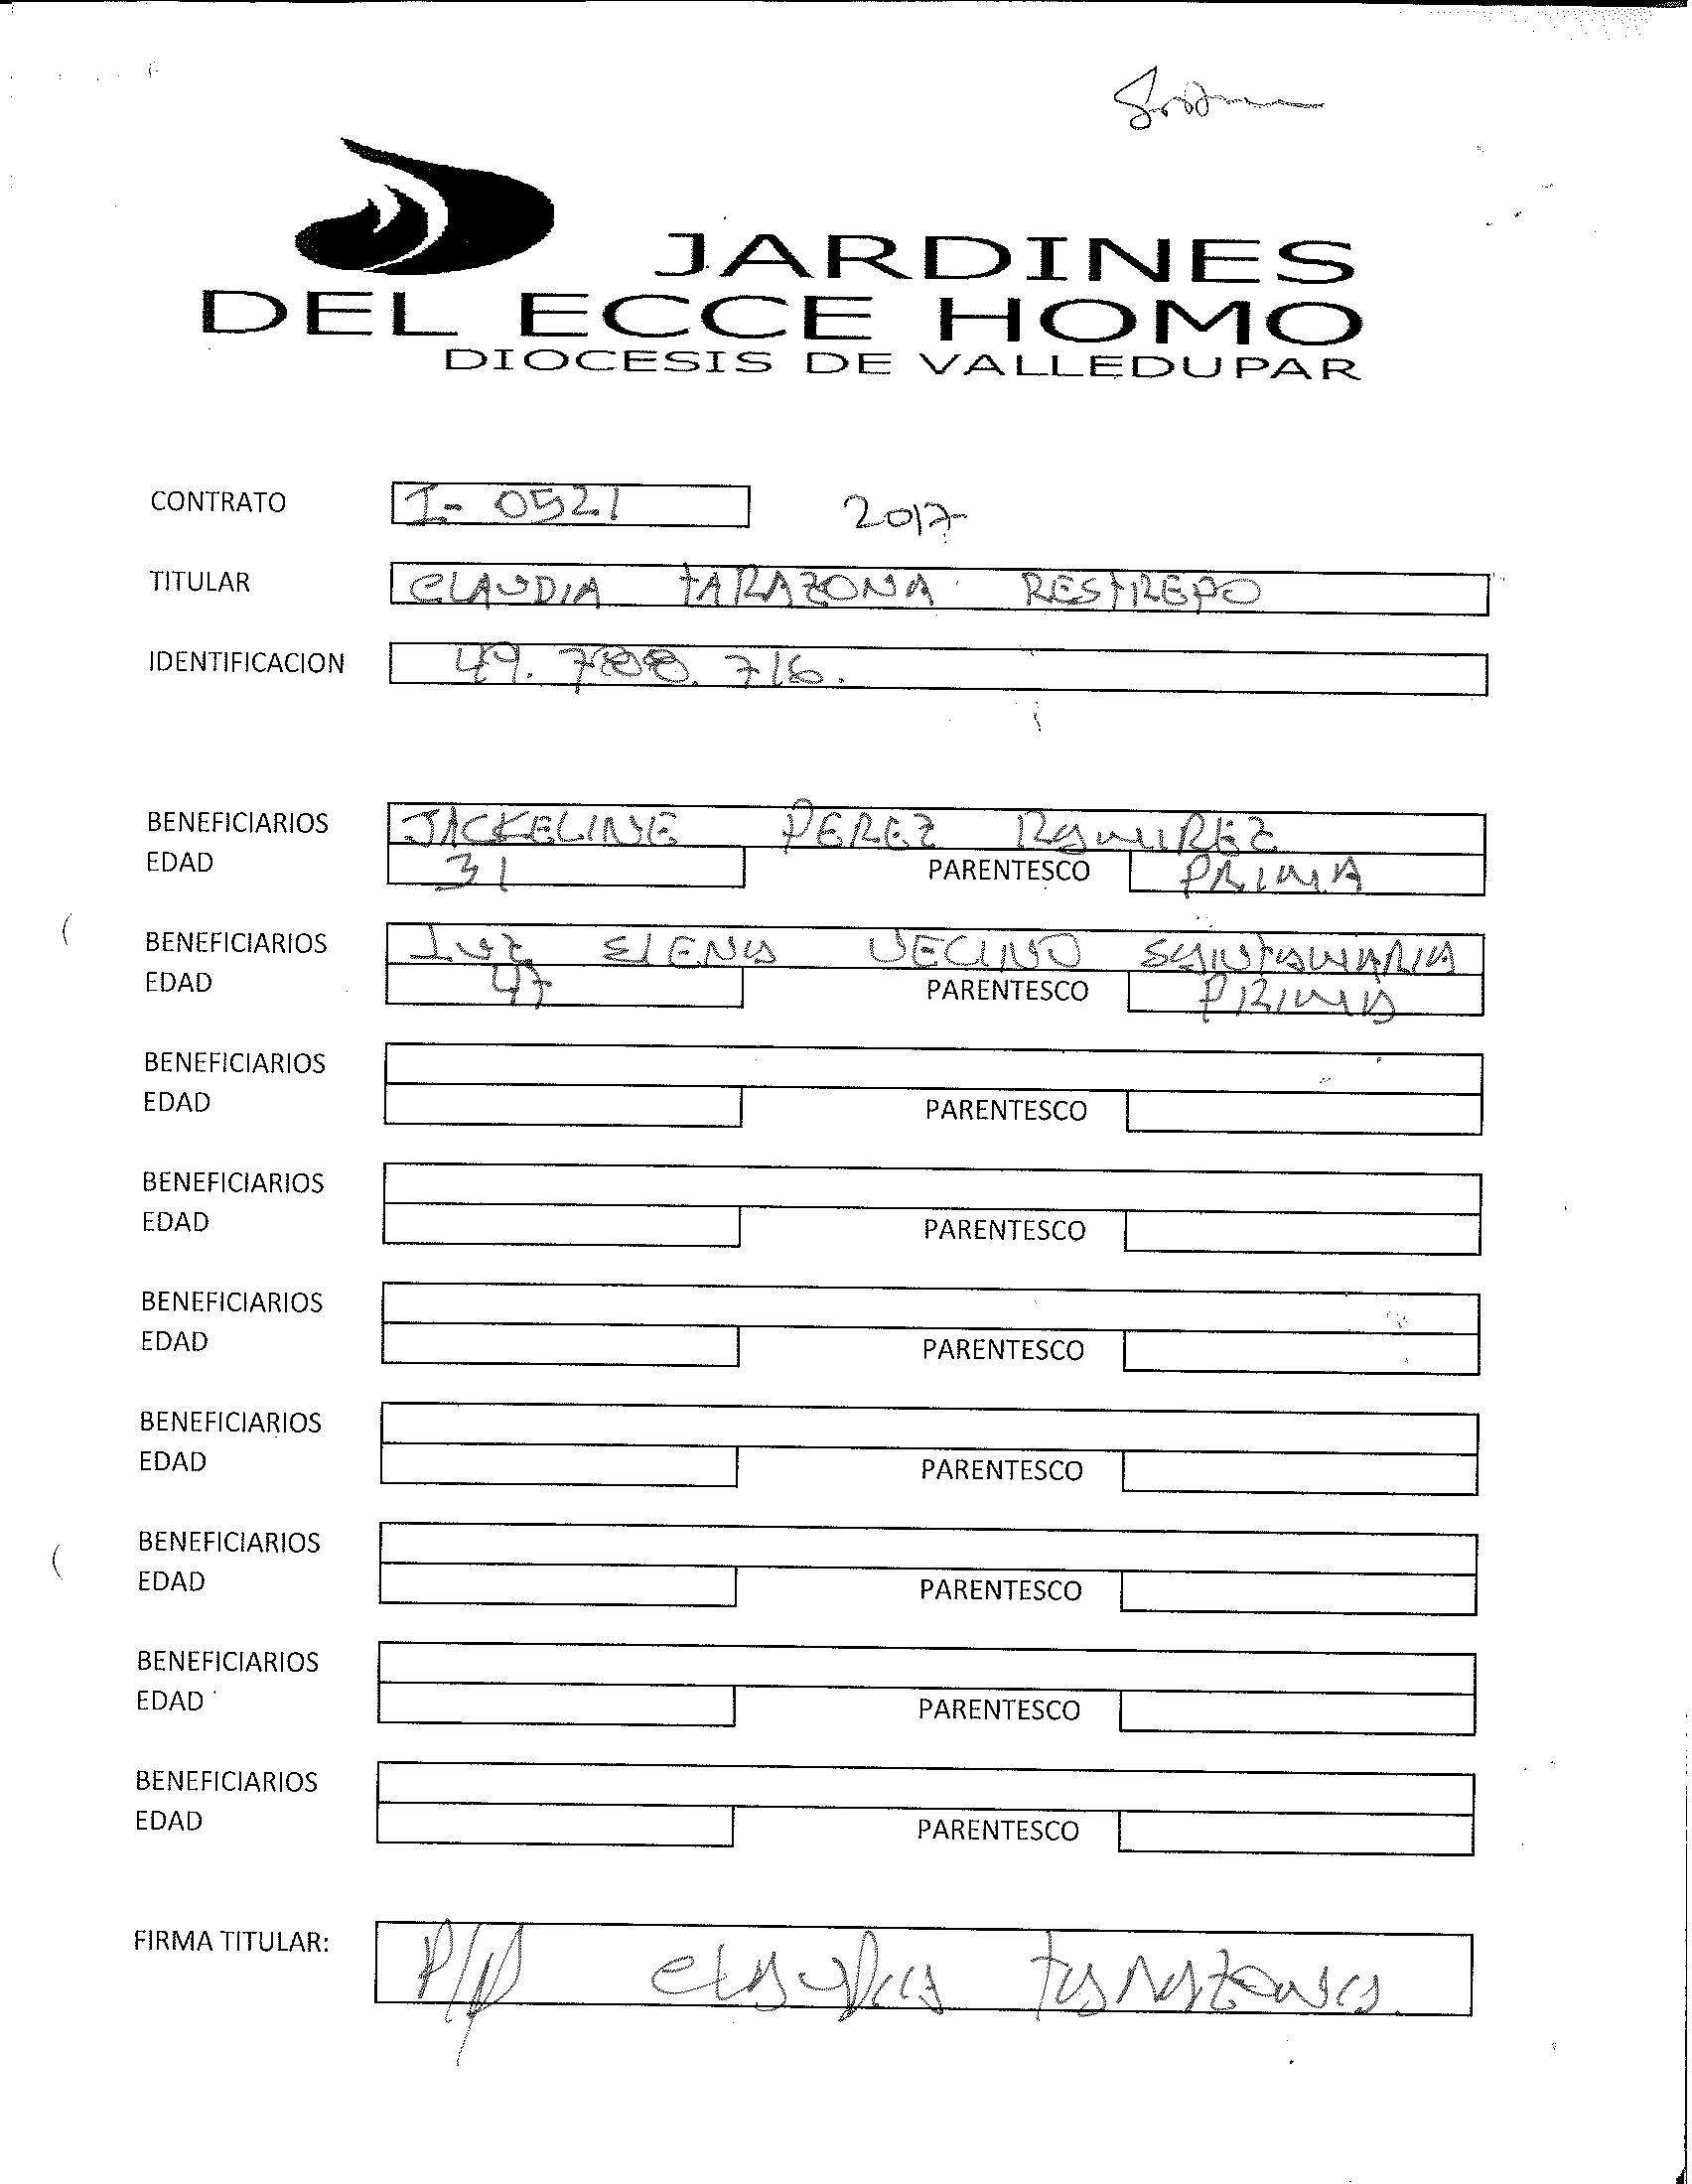 JARDINES
DEL ECCE HOMO
DIOCESIS DE VALLEDUPAR
CONTRATO I- 0521 2017
TITULAR CLAUDIA TARAZONA RESTREPO
IDENTIFICACION 49.788.716.
BENEFICIARIOS JACKELINE PEREZ RAMIREZ
EDAD 31 PARENTESCO PRIMA
BENEFICIARIOS LUZ ELENA VECINO SANTAMARIA
EDAD 47 PARENTESCO PRIMA
BENEFICIARIOS
EDAD PARENTESCO
BENEFICIARIOS
EDAD PARENTESCO
BENEFICIARIOS
EDAD PARENTESCO
BENEFICIARIOS
EDAD PARENTESCO
BENEFICIARIOS
EDAD PARENTESCO
BENEFICIARIOS
EDAD PARENTESCO
BENEFICIARIOS
EDAD PARENTESCO
FIRMA TITULAR: P/p Claudia Tarazona